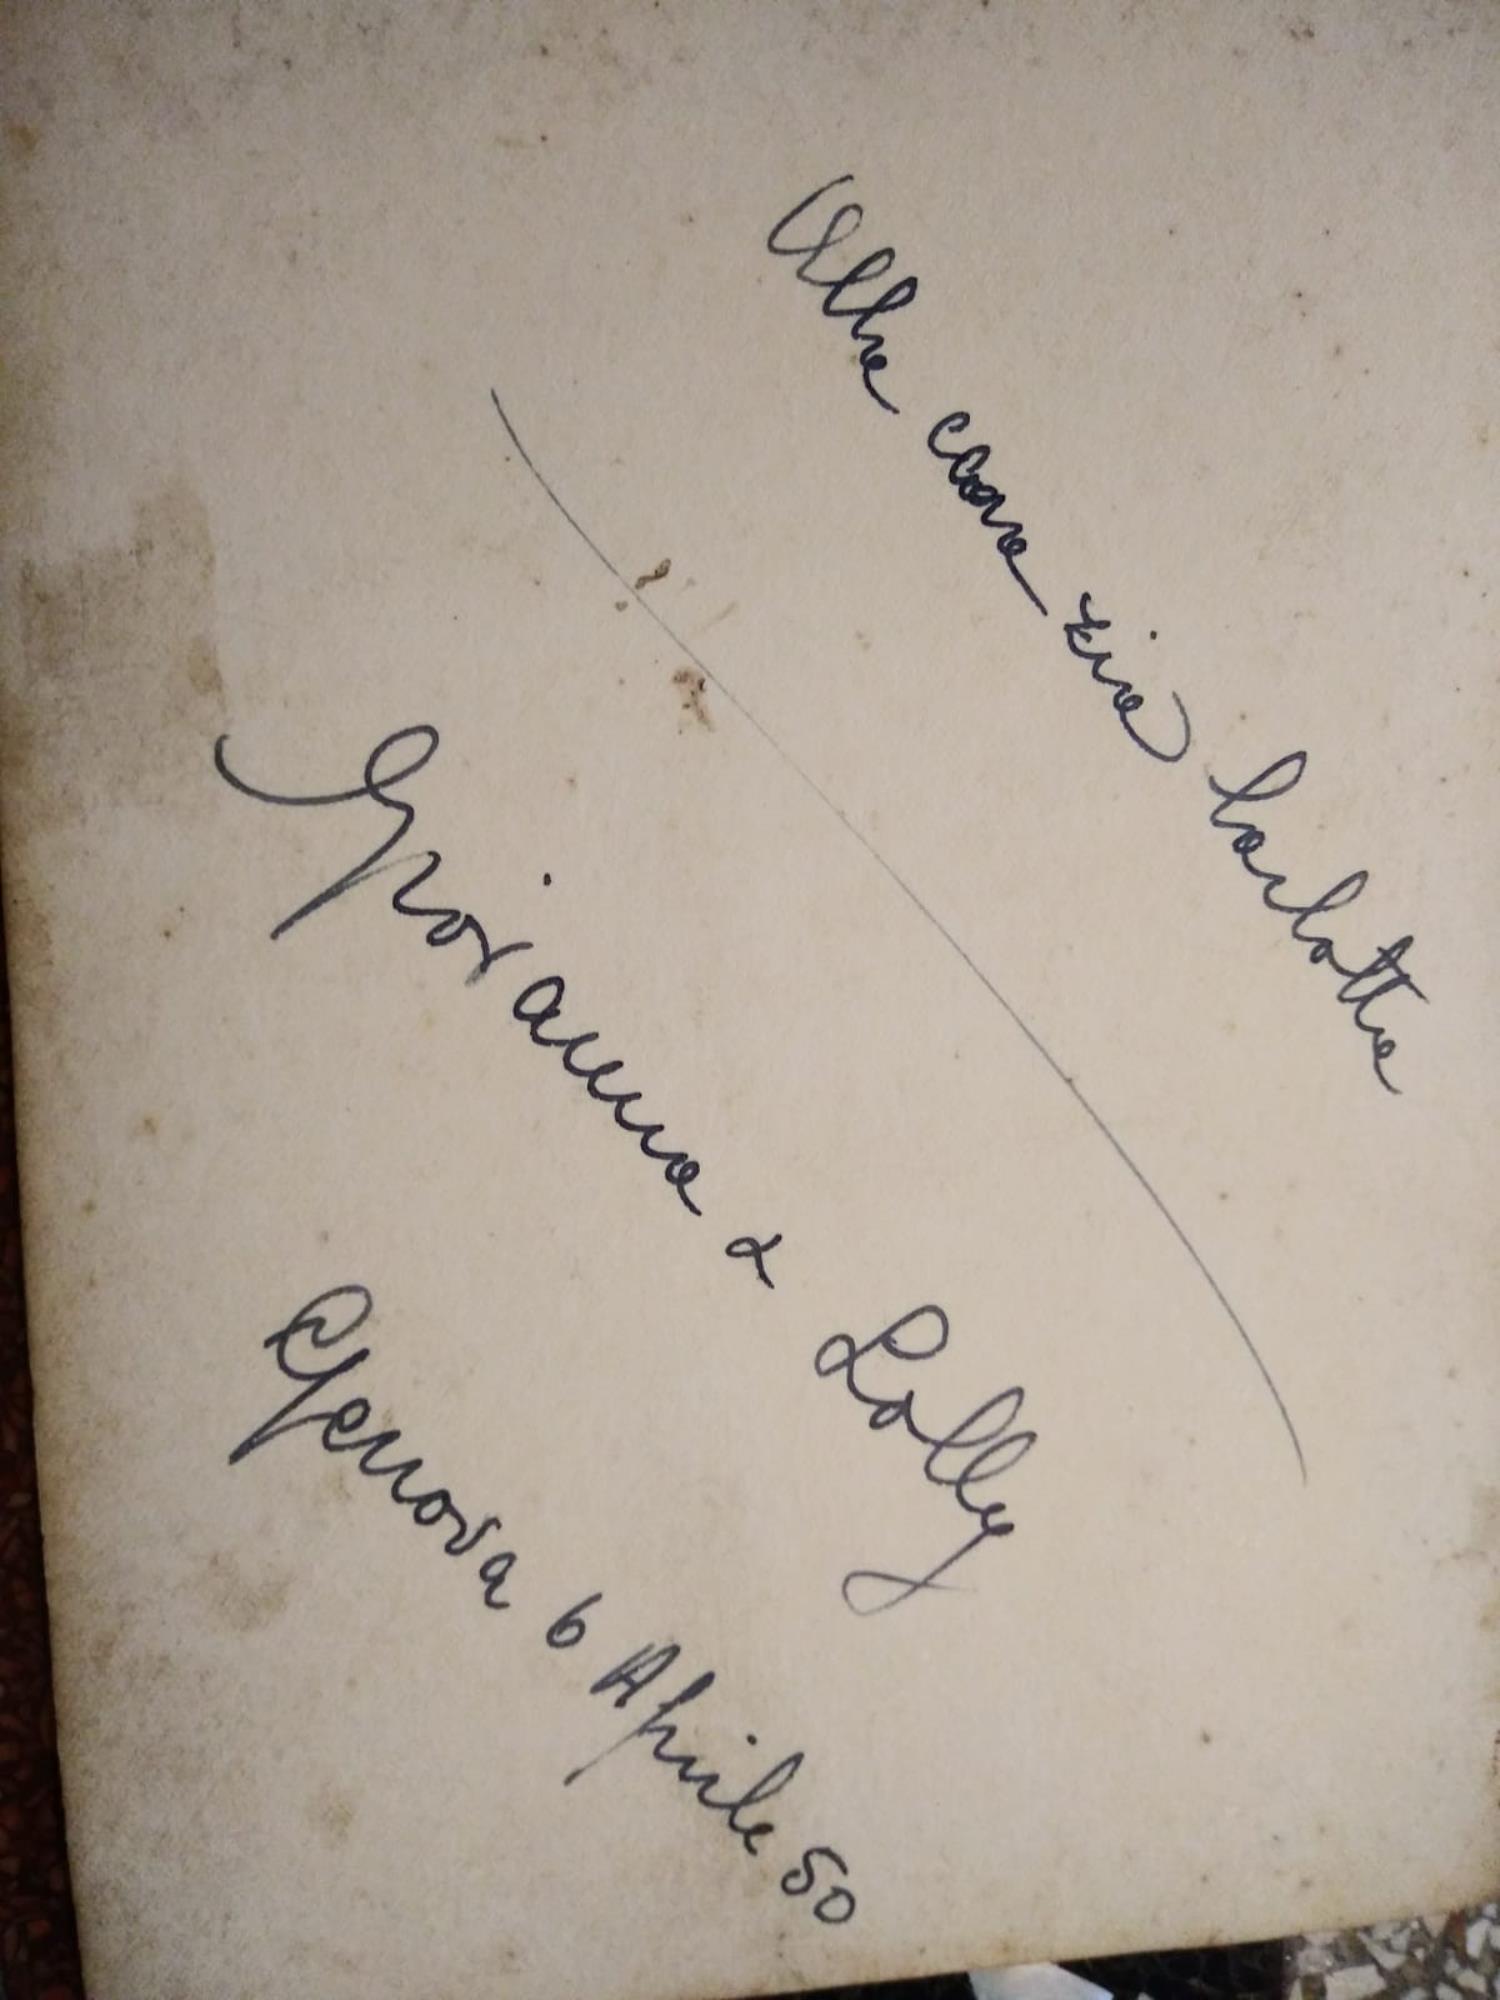 Alla cara zia Carlotta
Giovanna e Lolly
Genova 6 Aprile 50